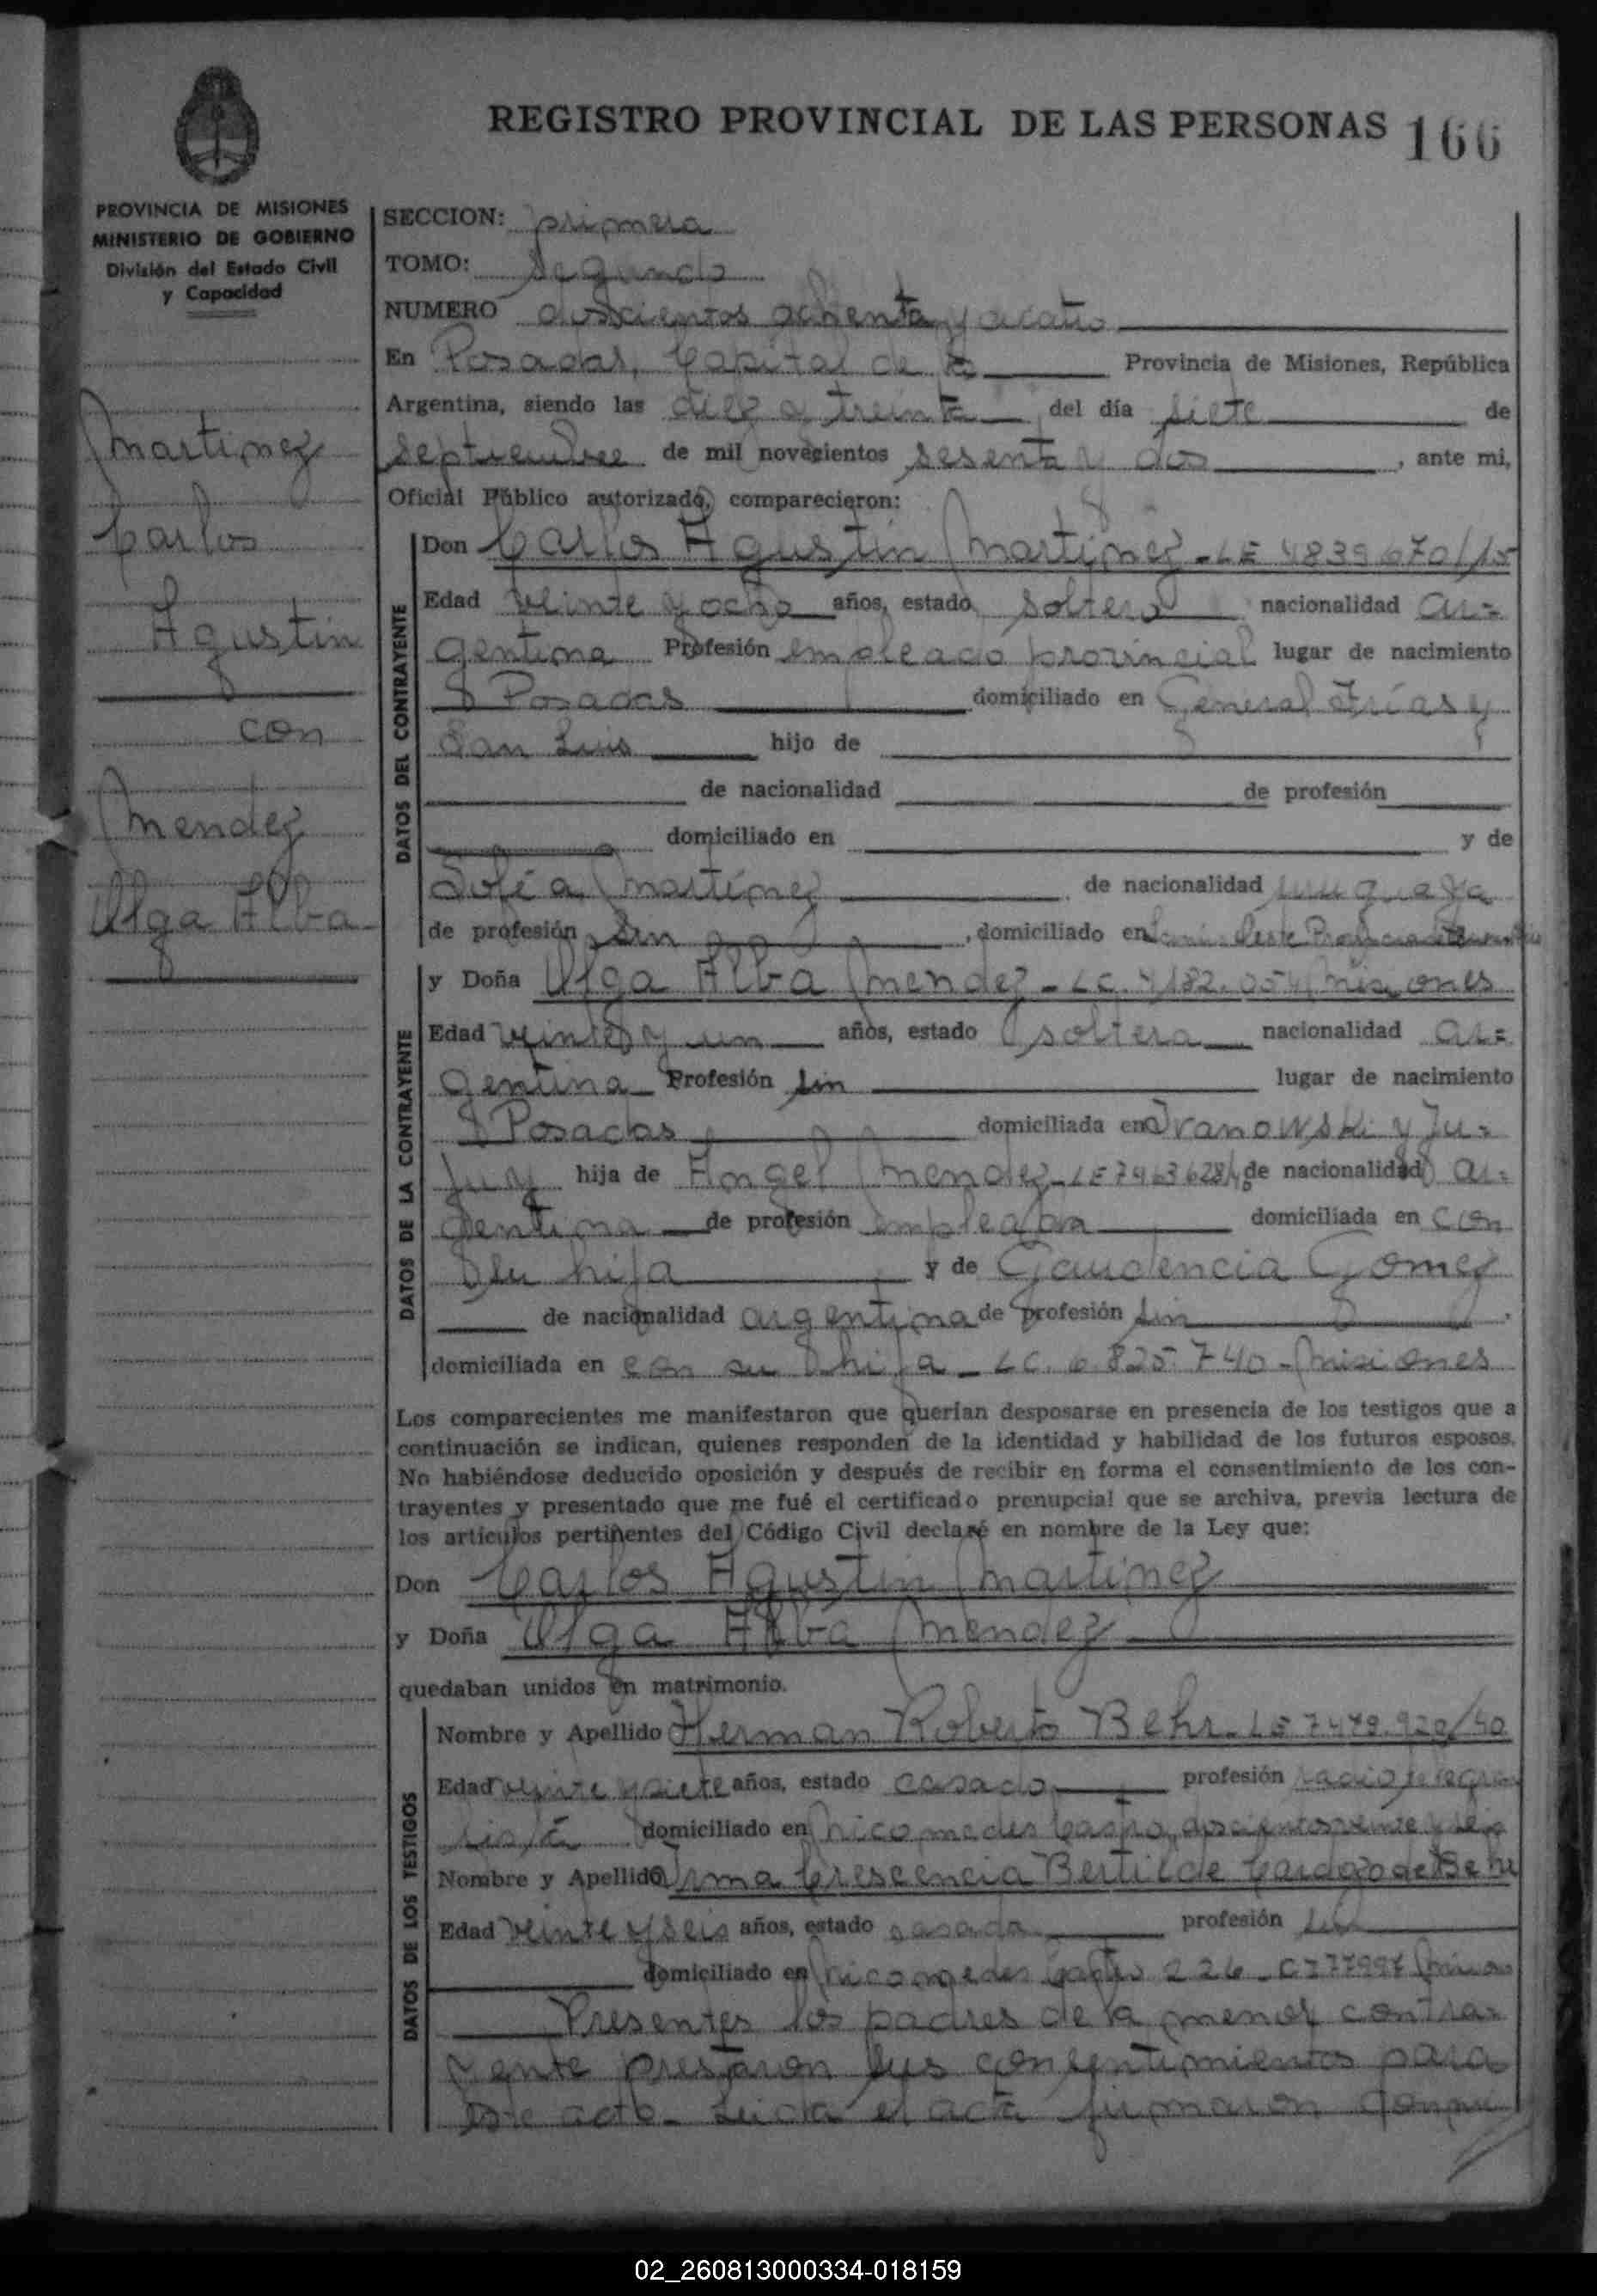 REGISTRO PROVINCIAL DE LAS PERSONAS 166
PROVINCIA DE MISIONES
MINISTERIO DE GOBIERNO
División del Estado Civil
y Capacidad
Martinez
Carlos
Agustin
con
Mendez
Olga Alba
SECCION: primera
TOMO: Segundo
NUMERO doscientos ochenta y cuatro
En Posadas, Capital de la Provincia de Misiones, República
Argentina, siendo las diez y treinta del día siete de
septiembre de mil novecientos sesenta y dos, ante mi,
Oficial Público autorizado, comparecieron:
DATOS DEL CONTRAYENTE
Don Carlos Agustin Martinez - LE 4839670/15
Edad veinte y ocho años, estado soltero nacionalidad ar=
gentina Profesión empleado provincial lugar de nacimiento
Posadas domiciliado en General Frías y
San Luis hijo de
de nacionalidad de profesión
domiciliado en y de
Sofía Martínez de nacionalidad uruguaya
de profesión sin, domiciliado en
DATOS DE LA CONTRAYENTE
y Doña Olga Alba Mendez - LC. 4182.054 Misiones
Edad veinte y un años, estado soltera nacionalidad ar=
gentina Profesión sin lugar de nacimiento
Posadas domiciliada en Ivanowski y Ju=
juy hija de Angel Mendez - LE 7463628 de nacionalidad ar=
gentina de profesión empleado domiciliada en con
su hija y de Gaudencia Gomez
de nacionalidad argentina de profesión sin.
domiciliada en con su hija - LC. 6.825.740 - Misiones
Los comparecientes me manifestaron que querían desposarse en presencia de los testigos que a
continuación se indican, quienes responden de la identidad y habilidad de los futuros esposos.
No habiéndose deducido oposición y después de recibir en forma el consentimiento de los con-
trayentes y presentado que me fué el certificado prenupcial que se archiva, previa lectura de
los artículos pertinentes del Código Civil declaré en nombre de la Ley que:
Don Carlos Agustin Martinez
y Doña Olga Alba Mendez
quedaban unidos en matrimonio.
DATOS DE LOS TESTIGOS
Nombre y Apellido Herman Roberto Behr - LE 7479.920/40
Edad veinte y siete años, estado casado profesión radiotelegra
fista domiciliado en Nicomedes Castro, doscientos veinte y seis
Nombre y Apellido Irma Crescencia Bertilde Cardozo de Behr
Edad veinte y seis años, estado casada profesión sin
domiciliado en Nicomedes Castro 226 - C 777997
Presentes los padres de la menor contra=
yente prestaron sus consentimientos para
este acto - Leida el acta firmaron
02_260813000334-018159